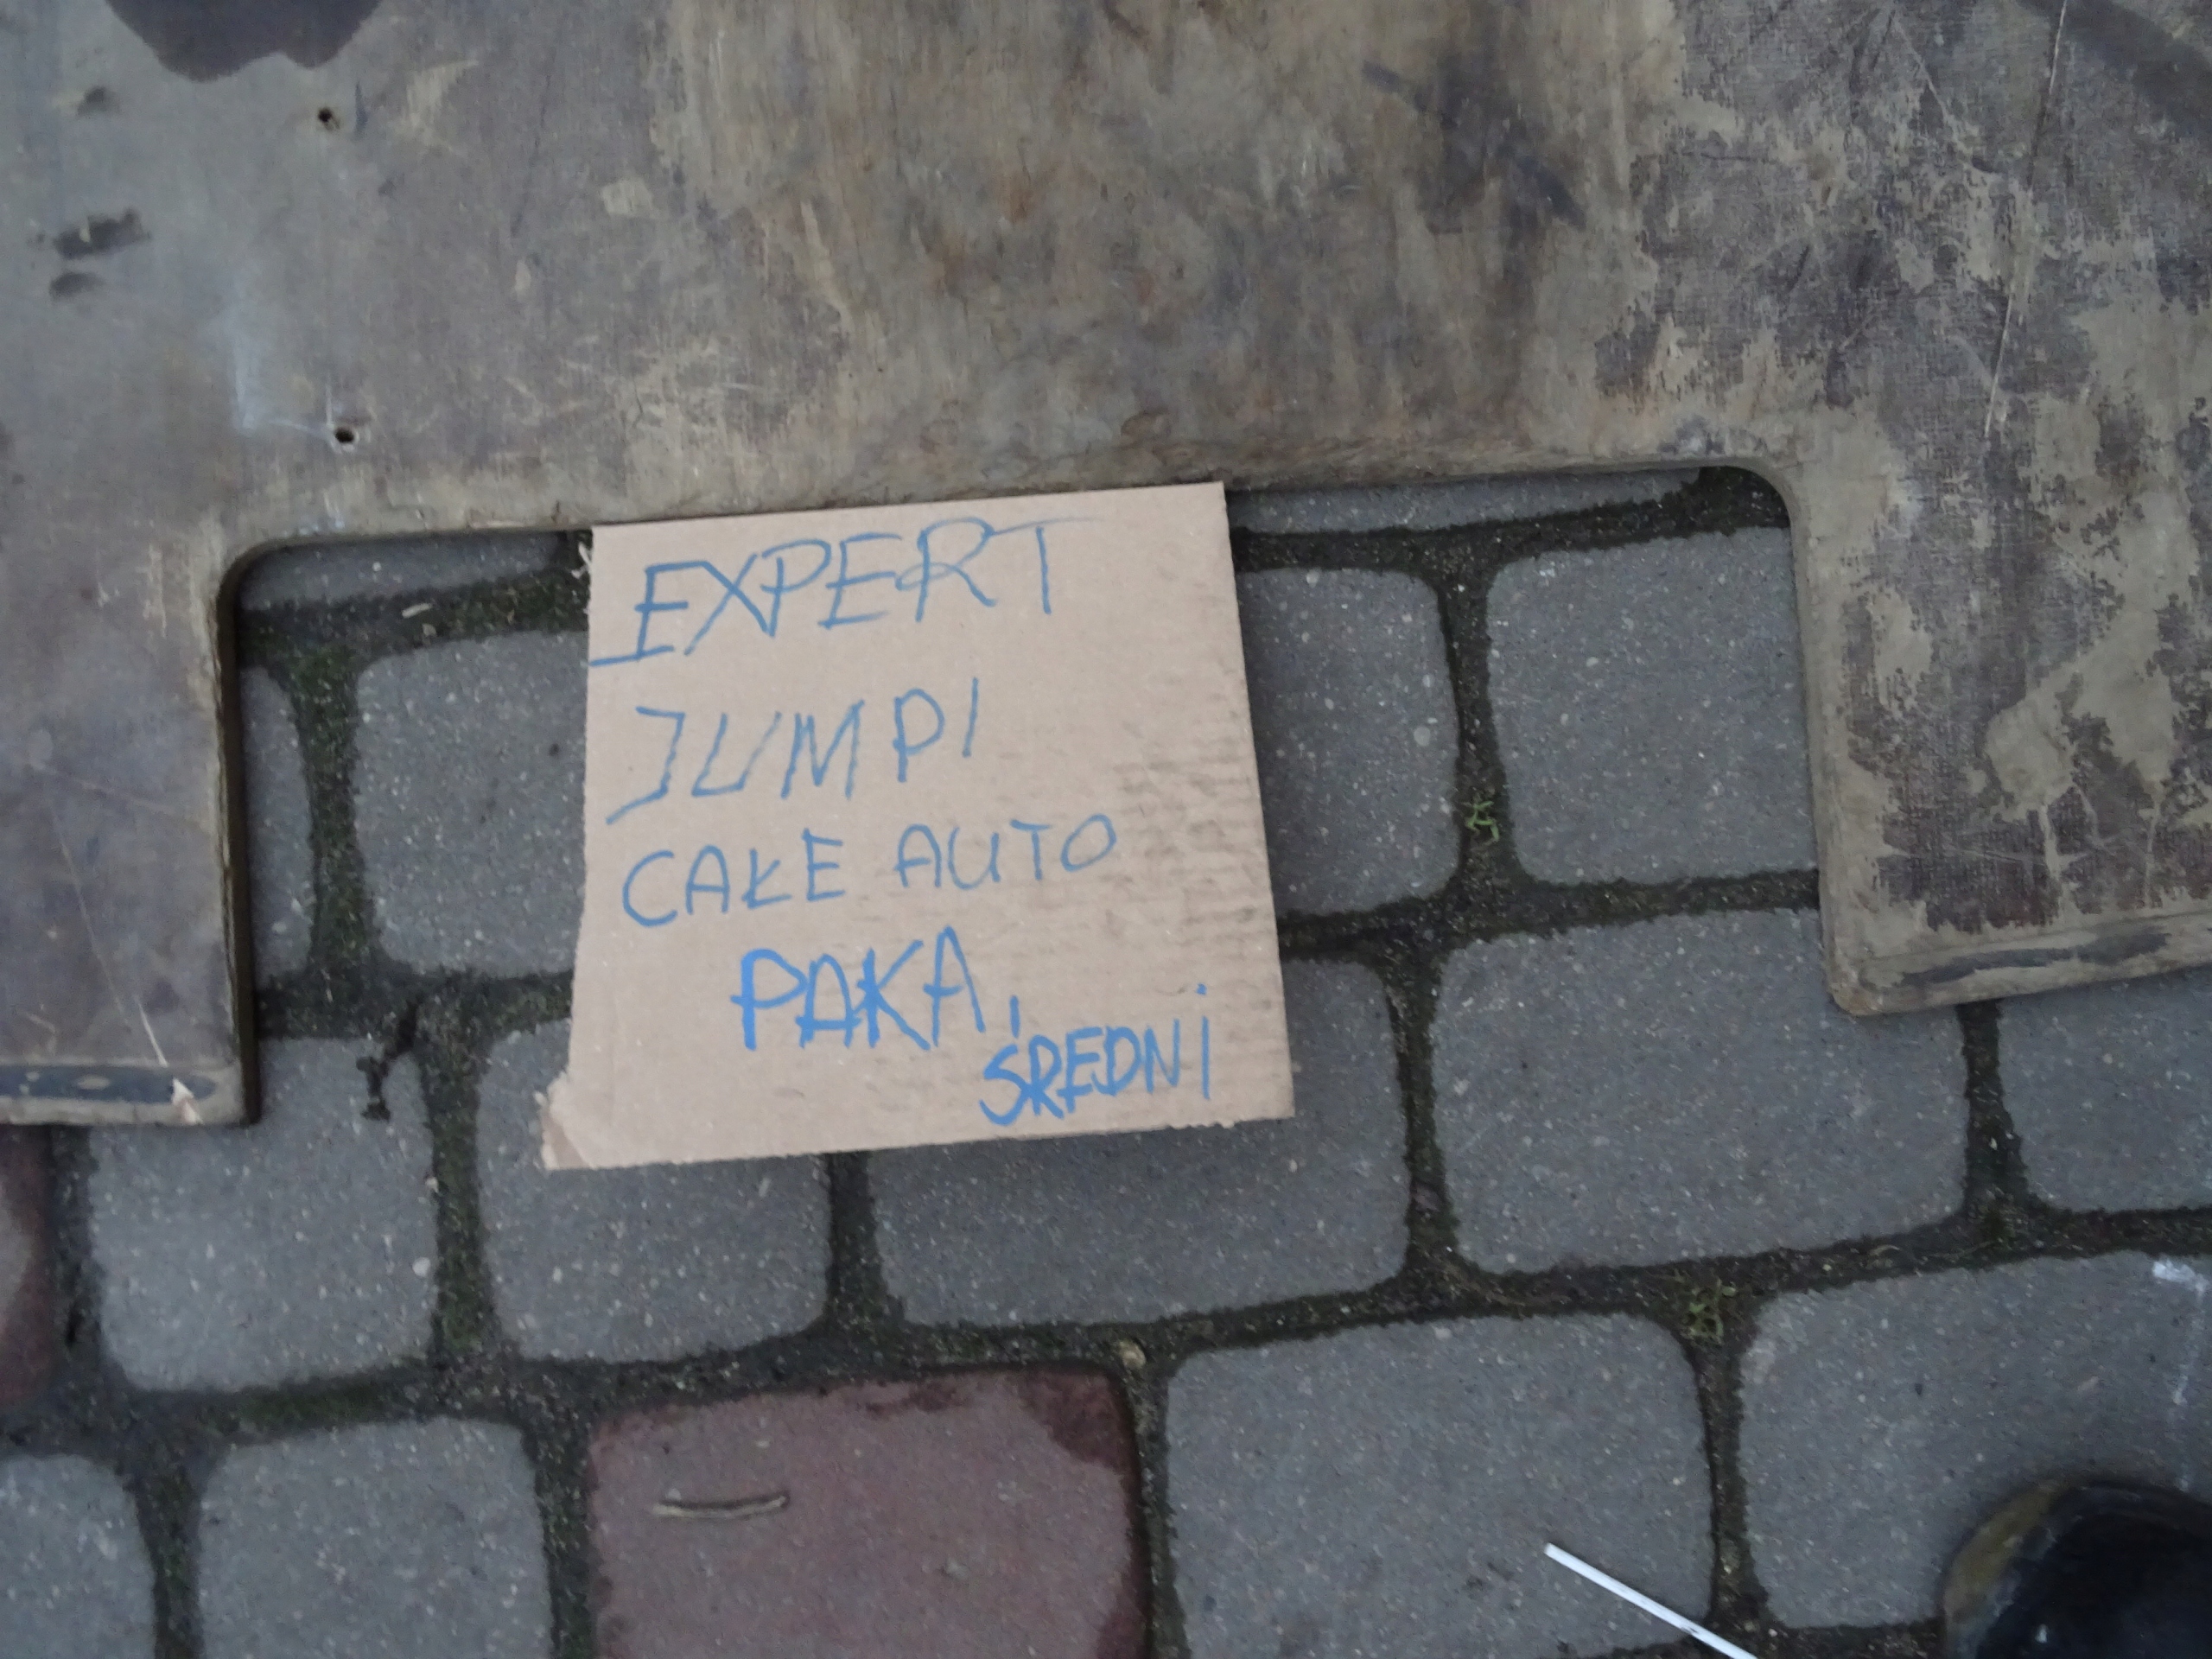 EXPERT
JUMPI
CAŁE AUTO
PAKA,
ŚREDNI